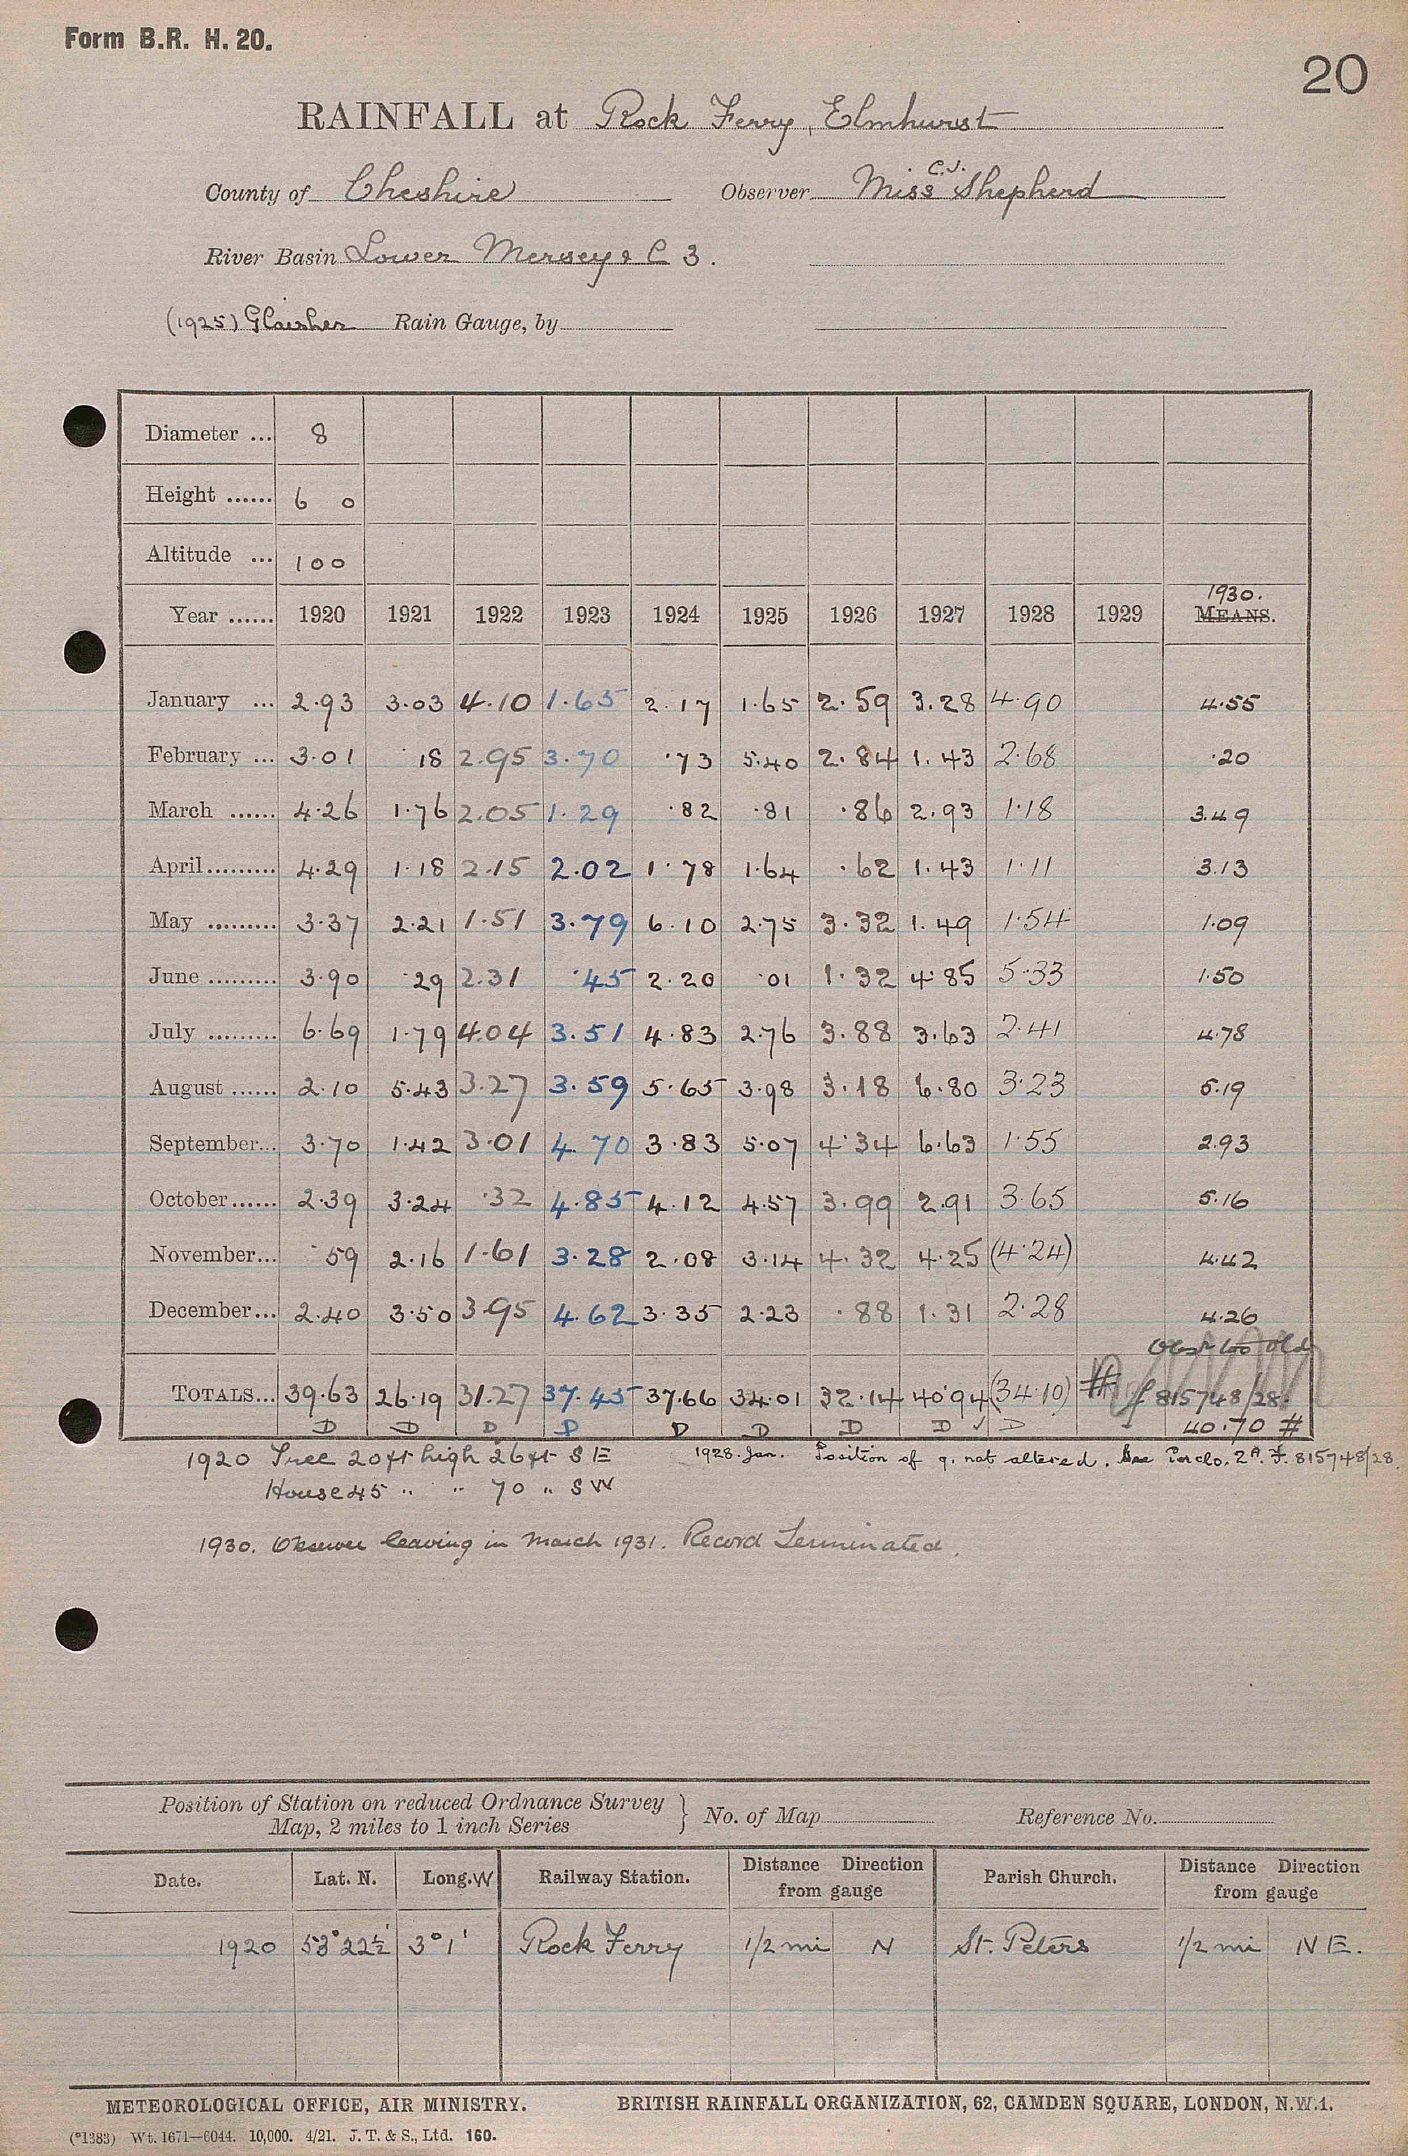 Form B.R. H. 20.
20
RAINFALL at Rock Ferry, Elmhurst
County of Cheshire Observer Miss C.J. Shepherd
River Basin Lower Mersey & C 3.
(1925) Glaisher Rain Gauge, by
Diameter ... 8
Height ...... 6 0
Altitude ... 100
Year ...... 1920 1921 1922 1923 1924 1925 1926 1927 1928 1929 1930. MEANS.
January ... 2.93 3.03 4.10 1.65 2.17 1.65 2.59 3.28 4.90 4.55
February ... 3.01 .18 2.95 3.70 .73 5.40 2.84 1.43 2.68 .20
March ...... 4.26 1.76 2.05 1.29 .82 .81 .86 2.93 1.18 3.49
April ......... 4.29 1.18 2.15 2.02 1.78 1.64 .62 1.43 1.11 3.13
May ......... 3.37 2.21 1.51 3.79 6.10 2.75 3.32 1.49 1.54 1.09
June ......... 3.90 .29 2.31 .45 2.20 .01 1.32 4.85 5.33 1.50
July ......... 6.69 1.79 4.04 3.51 4.83 2.76 3.88 3.63 2.41 4.78
August ...... 2.10 5.43 3.27 3.59 5.65 3.98 3.18 6.80 3.23 5.19
September... 3.70 1.42 3.01 4.70 3.83 5.07 4.34 6.63 1.55 2.93
October...... 2.39 3.24 .32 4.85 4.12 4.57 3.99 2.91 3.65 5.16
November... .59 2.16 1.61 3.28 2.08 3.14 4.32 4.25 (4.24) 4.42
December... 2.40 3.50 3.95 4.62 3.35 2.23 .88 1.31 2.28 4.26
Obsr too old
TOTALS... 39.63 26.19 31.27 37.45 37.66 34.01 32.14 40.94 (34.10) # f 815748/28.
D D D D D D D D ✓ D 40.70 #
1920 Tree 20ft high 26ft SE 1928. Jan. Position of g. not altered. See Perclo. 2A. F. 815748/28
House 45 " " 70 " SW
1930. Observer leaving in March 1931. Record Terminated.
Position of Station on reduced Ordnance Survey
Map, 2 miles to 1 inch Series } No. of Map Reference No.
Date. Lat. N. Long. W Railway Station. Distance Direction from gauge Parish Church. Distance Direction from gauge
1920 53° 22½' 3° 1' Rock Ferry 1/2 mi N St. Peters 1/2 mi NE.
METEOROLOGICAL OFFICE, AIR MINISTRY. BRITISH RAINFALL ORGANIZATION, 62, CAMDEN SQUARE, LONDON, N.W.1.
(*1383) Wt. 1671—6044. 10,000. 4/21. J. T. & S., Ltd. 160.